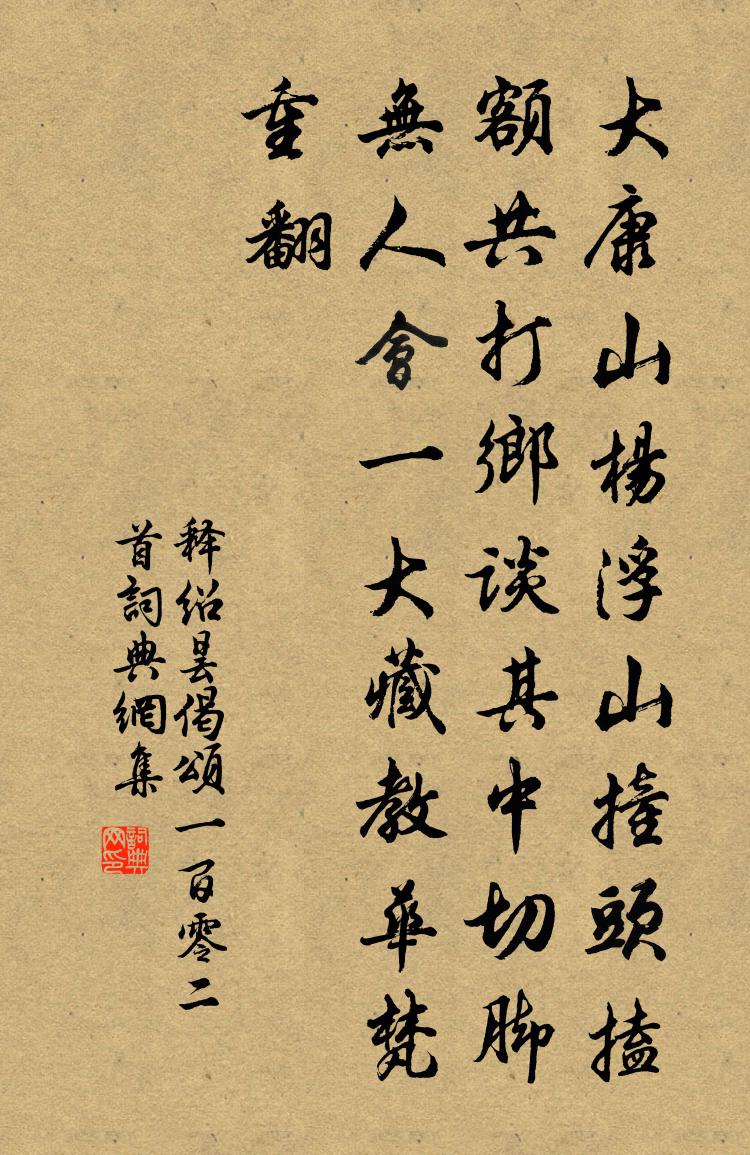 大康山楊浮山撞頭搕
額共打鄉談其中切脚
無人會一大藏教華梵
重翻
释紹曇偈頌一百零二
首詞典網集
詞典网印